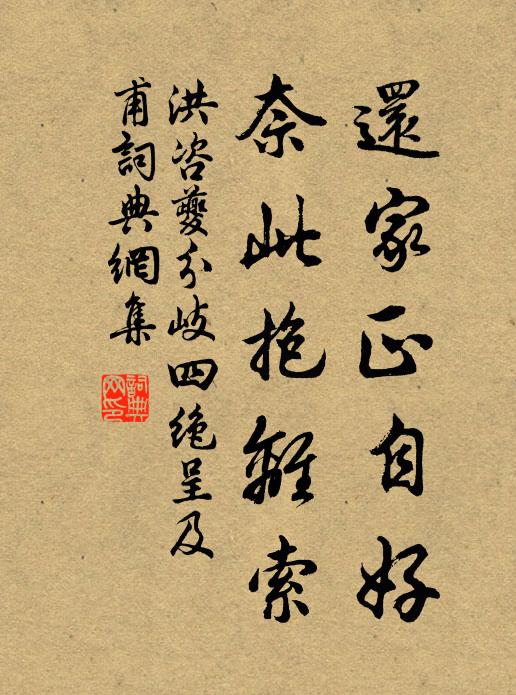 還家正自好
奈此抱離索
洪咨夔分岐四絶呈及
甫詞典網集
詞典網印